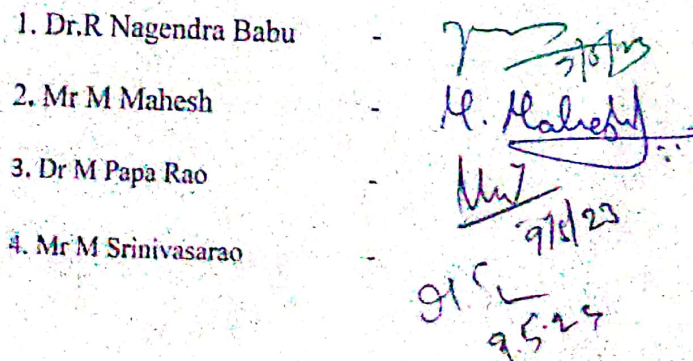 1. Dr.R Nagendra Babu -
2. Mr M Mahesh - M. Mahesh
3. Dr M Papa Rao -
9/5/23
4. Mr M Srinivasarao -